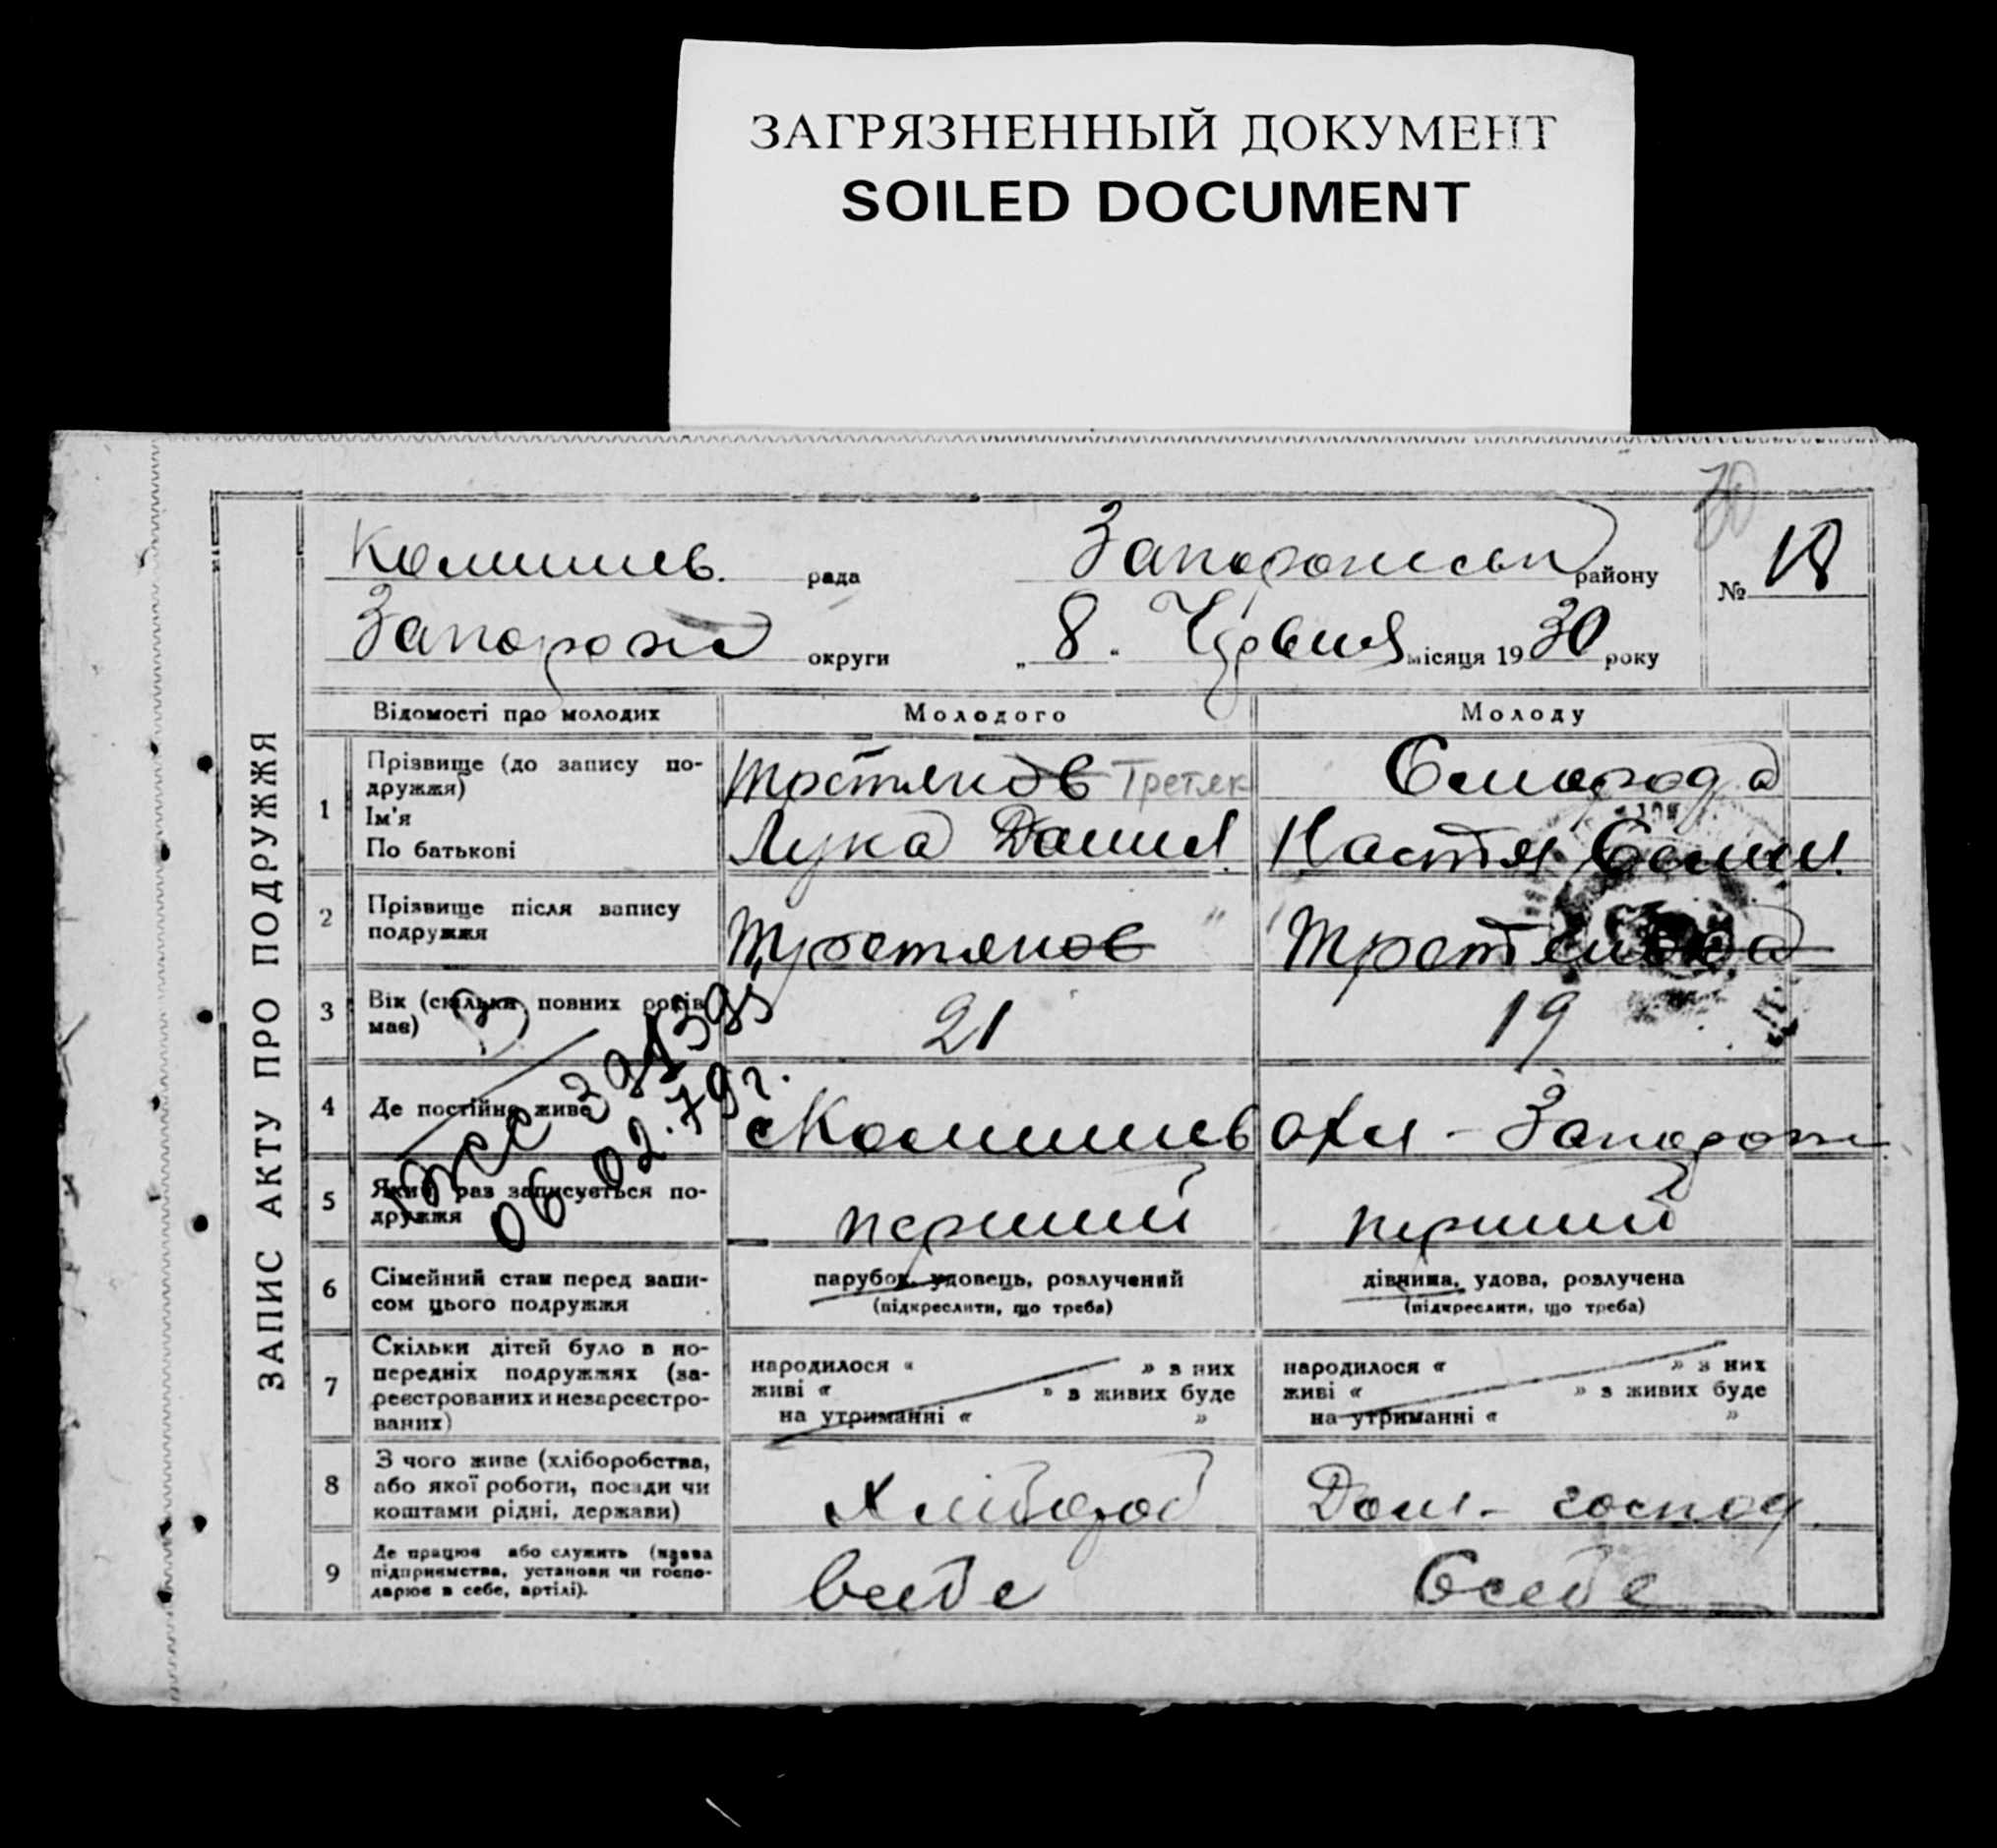 ЗАГРЯЗНЕННЫЙ ДОКУМЕНТ
SOILED DOCUMENT
30
ЗАПИС АКТУ ПРО ПОДРУЖЖЯ
Комишев. рада Запорожськ району № 18
Запорожс округи „ 8. “ Червня місяця 19 30 року
Відомості про молодих Молодого Молоду
1 Прізвище (до запису по-
дружжя)
Ім'я
По батькові
Третяков Третяк
Лука Данил.
Смородa
Настя Семин.
2 Прізвище після запису
подружжя
Третяков
Третякова
3 Вік (скільки повних років
має)
21
19
4 Де постійно живе
Комишеваха - Запорож
391395
06.02.79г.
5 Який раз записується по-
дружжя
перший
перший
6 Сімейний стан перед запи-
сом цього подружжя
парубок, удовець, розлучений
(підкреслити, що треба)
дівчина, удова, розлучена
(підкреслити, що треба)
7 Скільки дітей було в по-
передніх подружжях (за-
реєстрованих и незареєстро-
ваних)
народилося « » з них
живі « » з живих буде
на утриманні « »
народилося « » з них
живі « » з живих буде
на утриманні « »
8 З чого живе (хліборобства,
або якої роботи, посади чи
коштами рідні, держави)
Хлібороб
Дом - господ.
9 Де працює або служить (назва
підприємства, установи чи госпо-
дарює в себе, артілі).
в себе
в себе